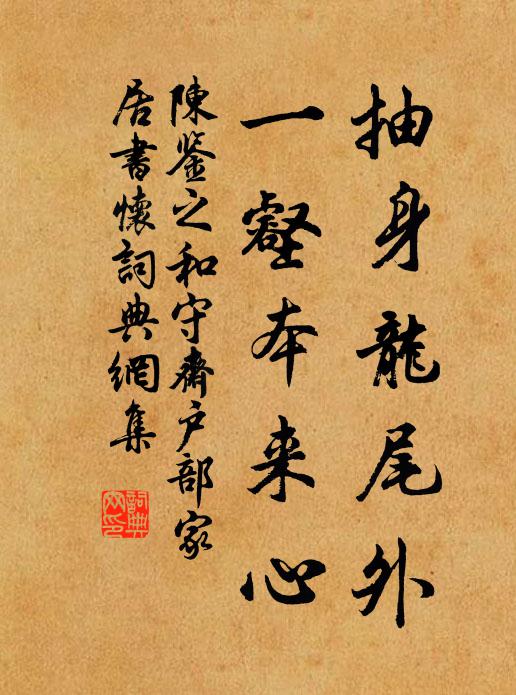 抽身龍尾外
一壑本来心
陳鉴之和守齋户部家
居書懷詞典網集
詞典網印